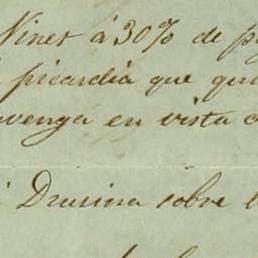 Nines á 30% de p
picardia que qui
venga en vista c
Drusina sobre l